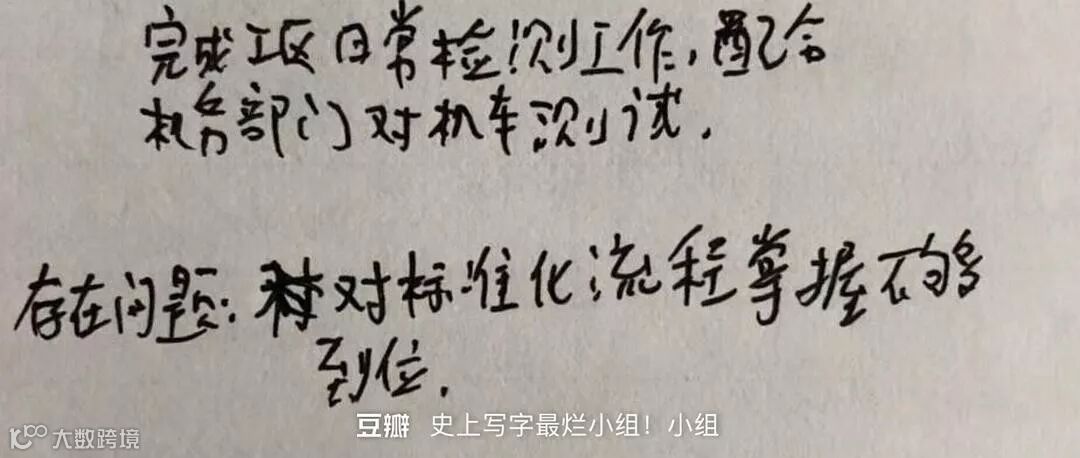 完成工区日常检测工作,配合
机务部门对机车测试.
存在问题:对标准化流程掌握不够
到位.
豆瓣 史上写字最烂小组!小组
大数跨境